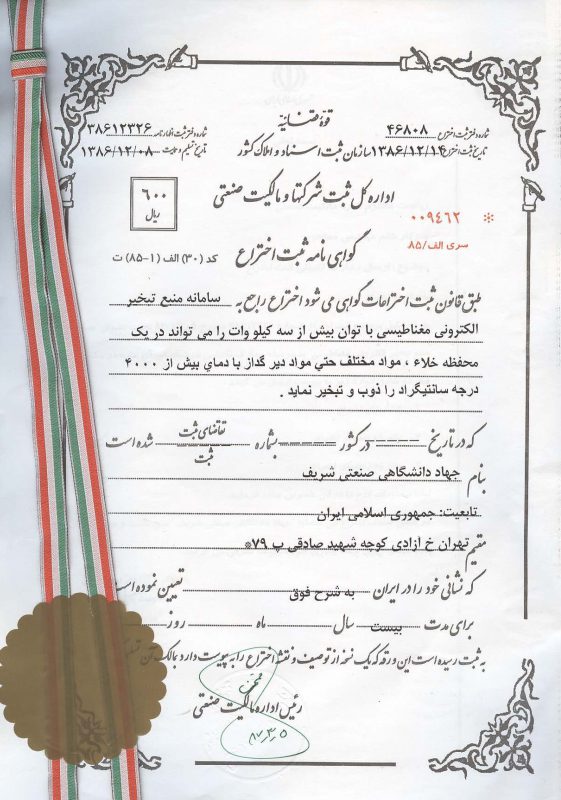 قوه قضائیه
شماره دفتر ثبت اختراع ۴۶۸۰۸
شماره دفتر ثبت اظهارنامه ۳۸۶۱۲۳۲۶
تاریخ ثبت اختراع ۱۳۸۶/۱۲/۱۴
سازمان ثبت اسناد و املاک کشور
تاریخ تسلیم ۱۳۸۶/۱۲/۰۸
اداره کل ثبت شرکتها و مالکیت صنعتی
۶۰۰
ریال
* ۰۰۹۴۶۲
سری الف/۸۵
گواهی نامه ثبت اختراع
کد (۳۰) الف (۱-۸۵) ت
طبق قانون ثبت اختراعات گواهی می شود اختراع راجع به سامانه منبع تبخیر
الکترونی مغناطیسی با توان بیش از سه کیلو وات را می تواند در یک
محفظه خلاء ، مواد مختلف حتي مواد دیر گداز با دماي بیش از ۴۰۰۰
درجه سانتیگراد را ذوب و تبخیر نماید .
که در تاریخ ----- در کشور ----- بشماره تقاضای ثبت شده است
ثبت
بنام جهاد دانشگاهی صنعتی شریف
تابعیت: جمهوری اسلامی ایران
مقیم تهران خ ازادی کوچه شهید صادقی پ ۷۹*
که نشانی خود را در ایران به شرح فوق تعیین نموده است
برای مدت بیست سال ماه روز
به ثبت رسیده است این ورقه که یک نسخه از توصیف و نقشه اختراع را به پیوست دارد بمالک آن
رئیس اداره مالکیت صنعتی
۸۷/۳/۵